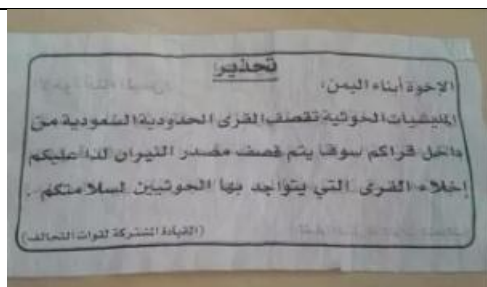 تحذير
الإخوة أبناء اليمن:
المليشيات الحوثية تقصف القرى الحدودية السعودية من
داخل قراكم سوف يتم قصف مصدر النيران لذا عليكم
إخلاء القرى التي يتواجد بها الحوثيين لسلامتكم .
(القيادة المشتركة لقوات التحالف)